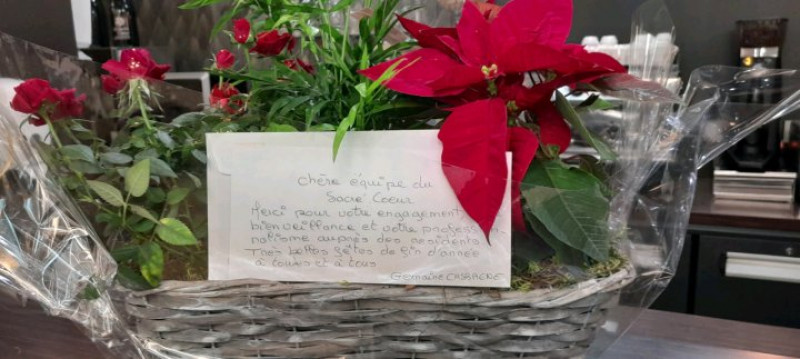 Chère équipe du
Sacré Coeur
Merci pour votre engagement,
bienveillance et votre profession-
nalisme auprès des résidents.
Très belles fêtes de fin d'année
à toutes et à tous
Germaine